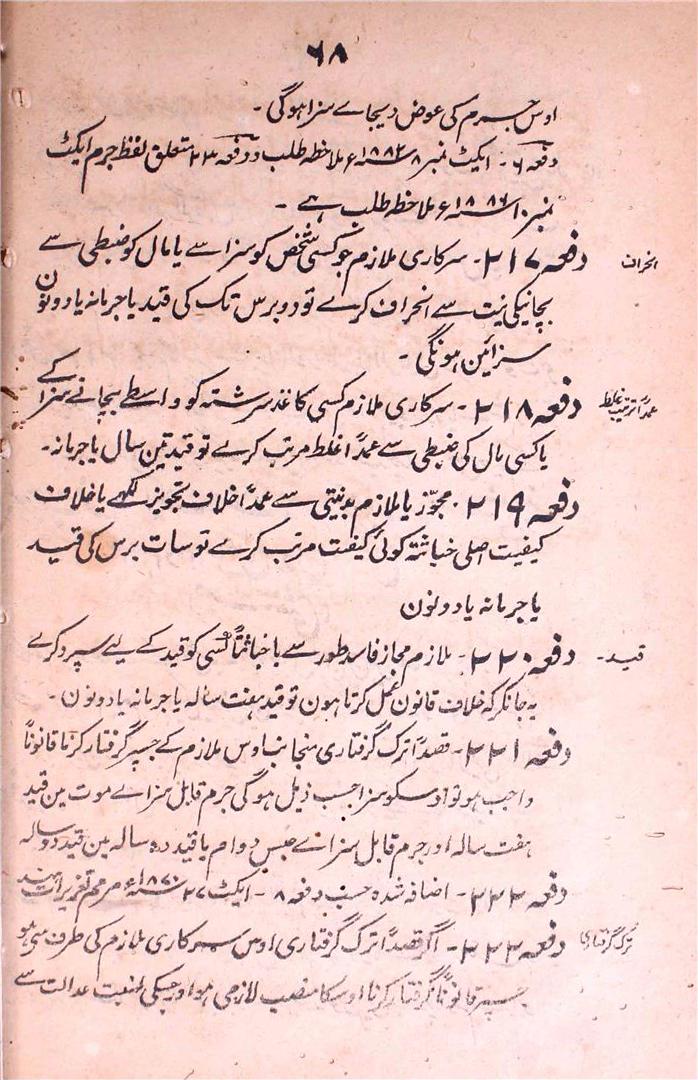 ۶۸
اوس جرم کی عوض دیجاے سزا ہوگی ۔
دفعہ ۶ ۔ ایکٹ نمبر ۸ ۱۸۸۲ء ملاحظہ طلب و دفعہ ۲۳ متعلق لفظ جرم ایکٹ
نمبر ۱۰ ۱۸۸۶ء ملاحظہ طلب ہے ۔
انحراف
دفعہ ۲۱۷ ۔ سرکاری ملازم جو کسی شخص کو سزا سے یا مال کو ضبطی سے
بچانیکی نیت سے انحراف کرے تو دو برس تک کی قید یا جرمانہ یا دونون
سزائین ہونگی ۔
عمداً ترتیب غلط
دفعہ ۲۱۸ ۔ سرکاری ملازم کسی کاغذ سررشتہ کو واسطے بچانے سزا کے
یا کسی مال کی ضبطی سے عمداً غلط مرتب کرے تو قید تین سال یا جرمانہ ۔
دفعہ ۲۱۹ ۔ مجوّز یا ملازم بدنیتی سے عمداً خلاف تجویز لکھے یا خلاف
کیفیت اصلی خباثتہً کوئی کیفیت مرتب کرے تو سات برس کی قید
یا جرمانہ یا دونون
قید ۔
دفعہ ۲۲۰ ۔ ملازم مجاز فاسد طور سے یا خباثتاً کسی کو قید کے لیے سپرد کرے
یہ جانکر کہ خلاف قانون عمل کرتا ہون تو قید ہفت سالہ یا جرمانہ یا دونون ۔
دفعہ ۲۲۱ ۔ قصداً ترک گرفتاری منجانب اوس ملازم کے جسپر گرفتار کرنا قانوناً
واجب ہو تو اوسکو سزا حسب ذیل ہوگی جرم قابل سزاے موت مین قید
ہفت سالہ اور جرم قابل سزاے حبس دوام یا قید دہ سالہ مین قید دو سالہ
دفعہ ۲۲۲ ۔ اضافہ شدہ حسب دفعہ ۸ ۔ ایکٹ ۲۷ ۱۸۷۰ء مرمم تعزیرات ہند
ترک گرفتاری
دفعہ ۲۲۲ ۔ اگر قصداً ترک گرفتاری اوس سرکاری ملازم کی طرف سے ہو
جسپر قانوناً گرفتار کرنا اوسکا منصب لازمی ہو اور جسکی نسبت عدالت سے